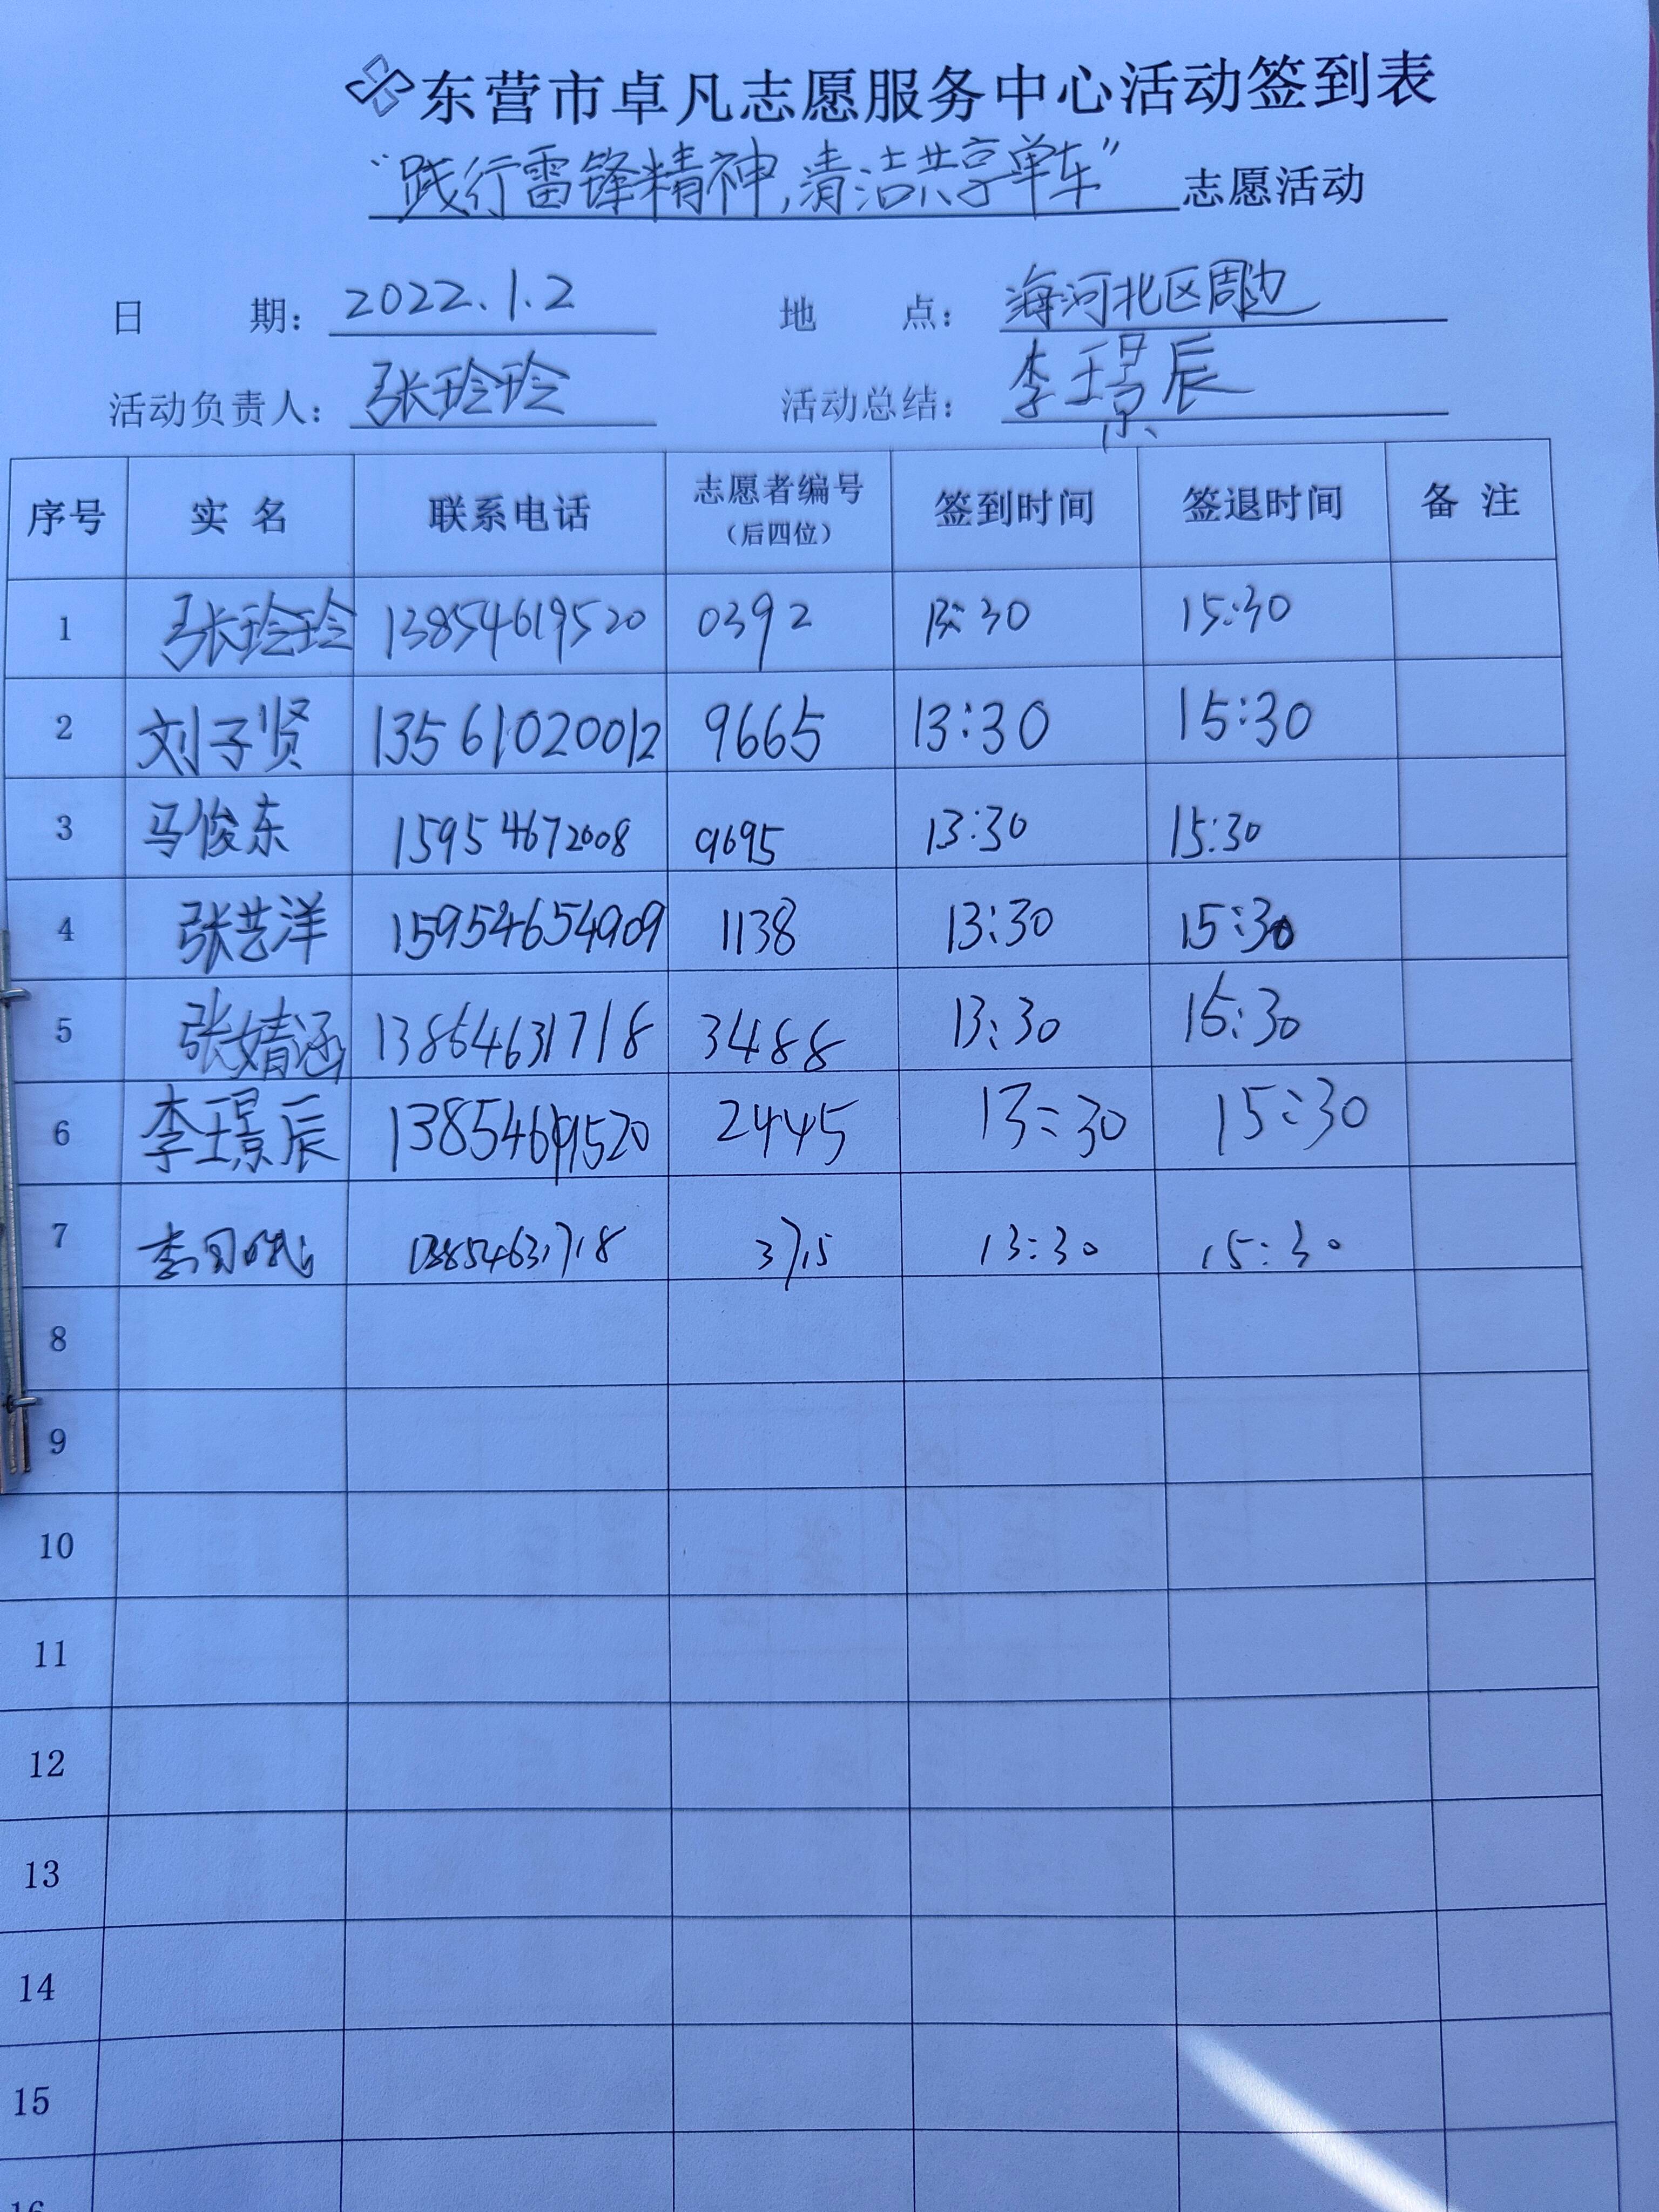 东营市卓凡志愿服务中心活动签到表
“践行雷锋精神,清洁共享单车” 志愿活动
日 期: 2022.1.2 地 点: 海河北区周边
活动负责人: 张玲玲 活动总结: 李璟辰
序号 实名 联系电话 志愿者编号(后四位) 签到时间 签退时间 备注
1 张玲玲 13854619520 0392 13:30 15:30
2 刘子贤 13561020012 9665 13:30 15:30
3 马俊东 15954672008 9695 13:30 15:30
4 张艺洋 15954654909 1138 13:30 15:30
5 张婧涵 13864631718 3488 13:30 15:30
6 李璟辰 13854619520 2445 13:30 15:30
7 李月娥 13854631718 3715 13:30 15:30
8
9
10
11
12
13
14
15
16